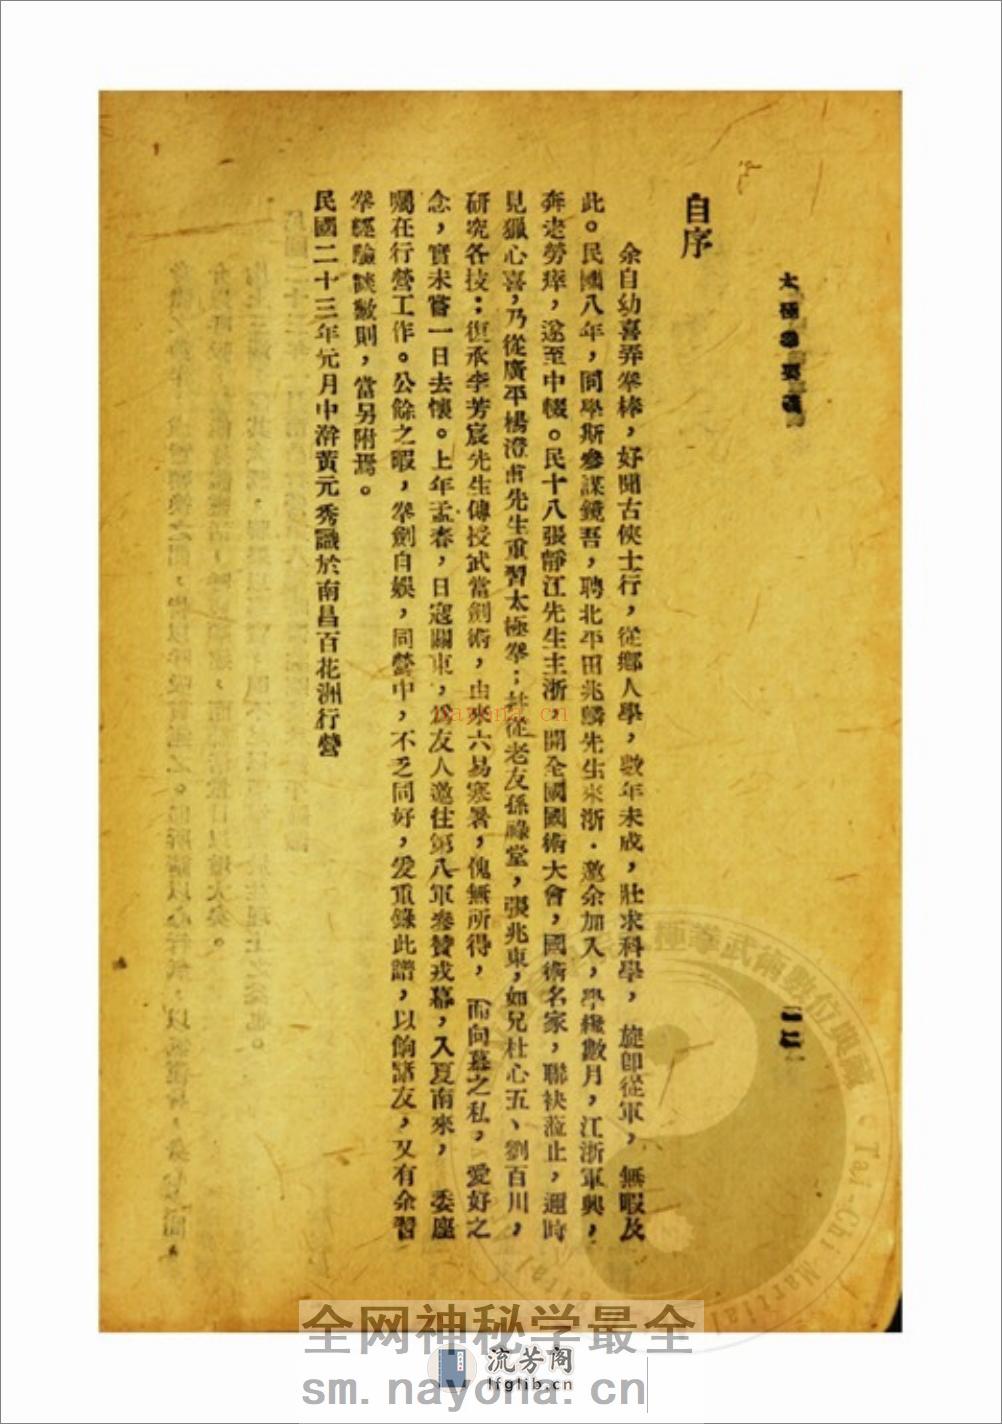 太極拳要義
自序
余自幼喜弄拳棒，好聞古俠士行，從鄉人學，數年未成，壯求科學，旋卽從軍，無暇及
此。民國八年，同學斯參謀鏡吾，聘北平田兆麟先生來浙．邀余加入，學纔數月，江浙軍興，
奔走勞瘁，遂至中輟。民十八張靜江先生主浙，開全國國術大會，國術名家，聯袂蒞止，邇時
見獵心喜，乃從廣平楊澄甫先生重習太極拳；並從老友孫祿堂，張兆東，如兄杜心五、劉百川，
研究各技；復承李芳宸先生傳授武當劍術，由來六易寒暑，愧無所得，而向慕之私，愛好之
念，實未嘗一日去懷。上年孟春，日寇關東，為友人邀往第八軍參贊戎幕，入夏南來，委座
囑在行營工作。公餘之暇，拳劍自娛，同營中，不乏同好，爰重錄此譜，以餉諸友，又有余習
拳經驗談數則，當另附焉。
民國二十三年元月中澣黃元秀識於南昌百花洲行營
極拳武術數位典藏
Tai-Chi Martial
nayona.cn
全网神秘学最全
流芳阁
lfglib.cn
sm.nayona.cn